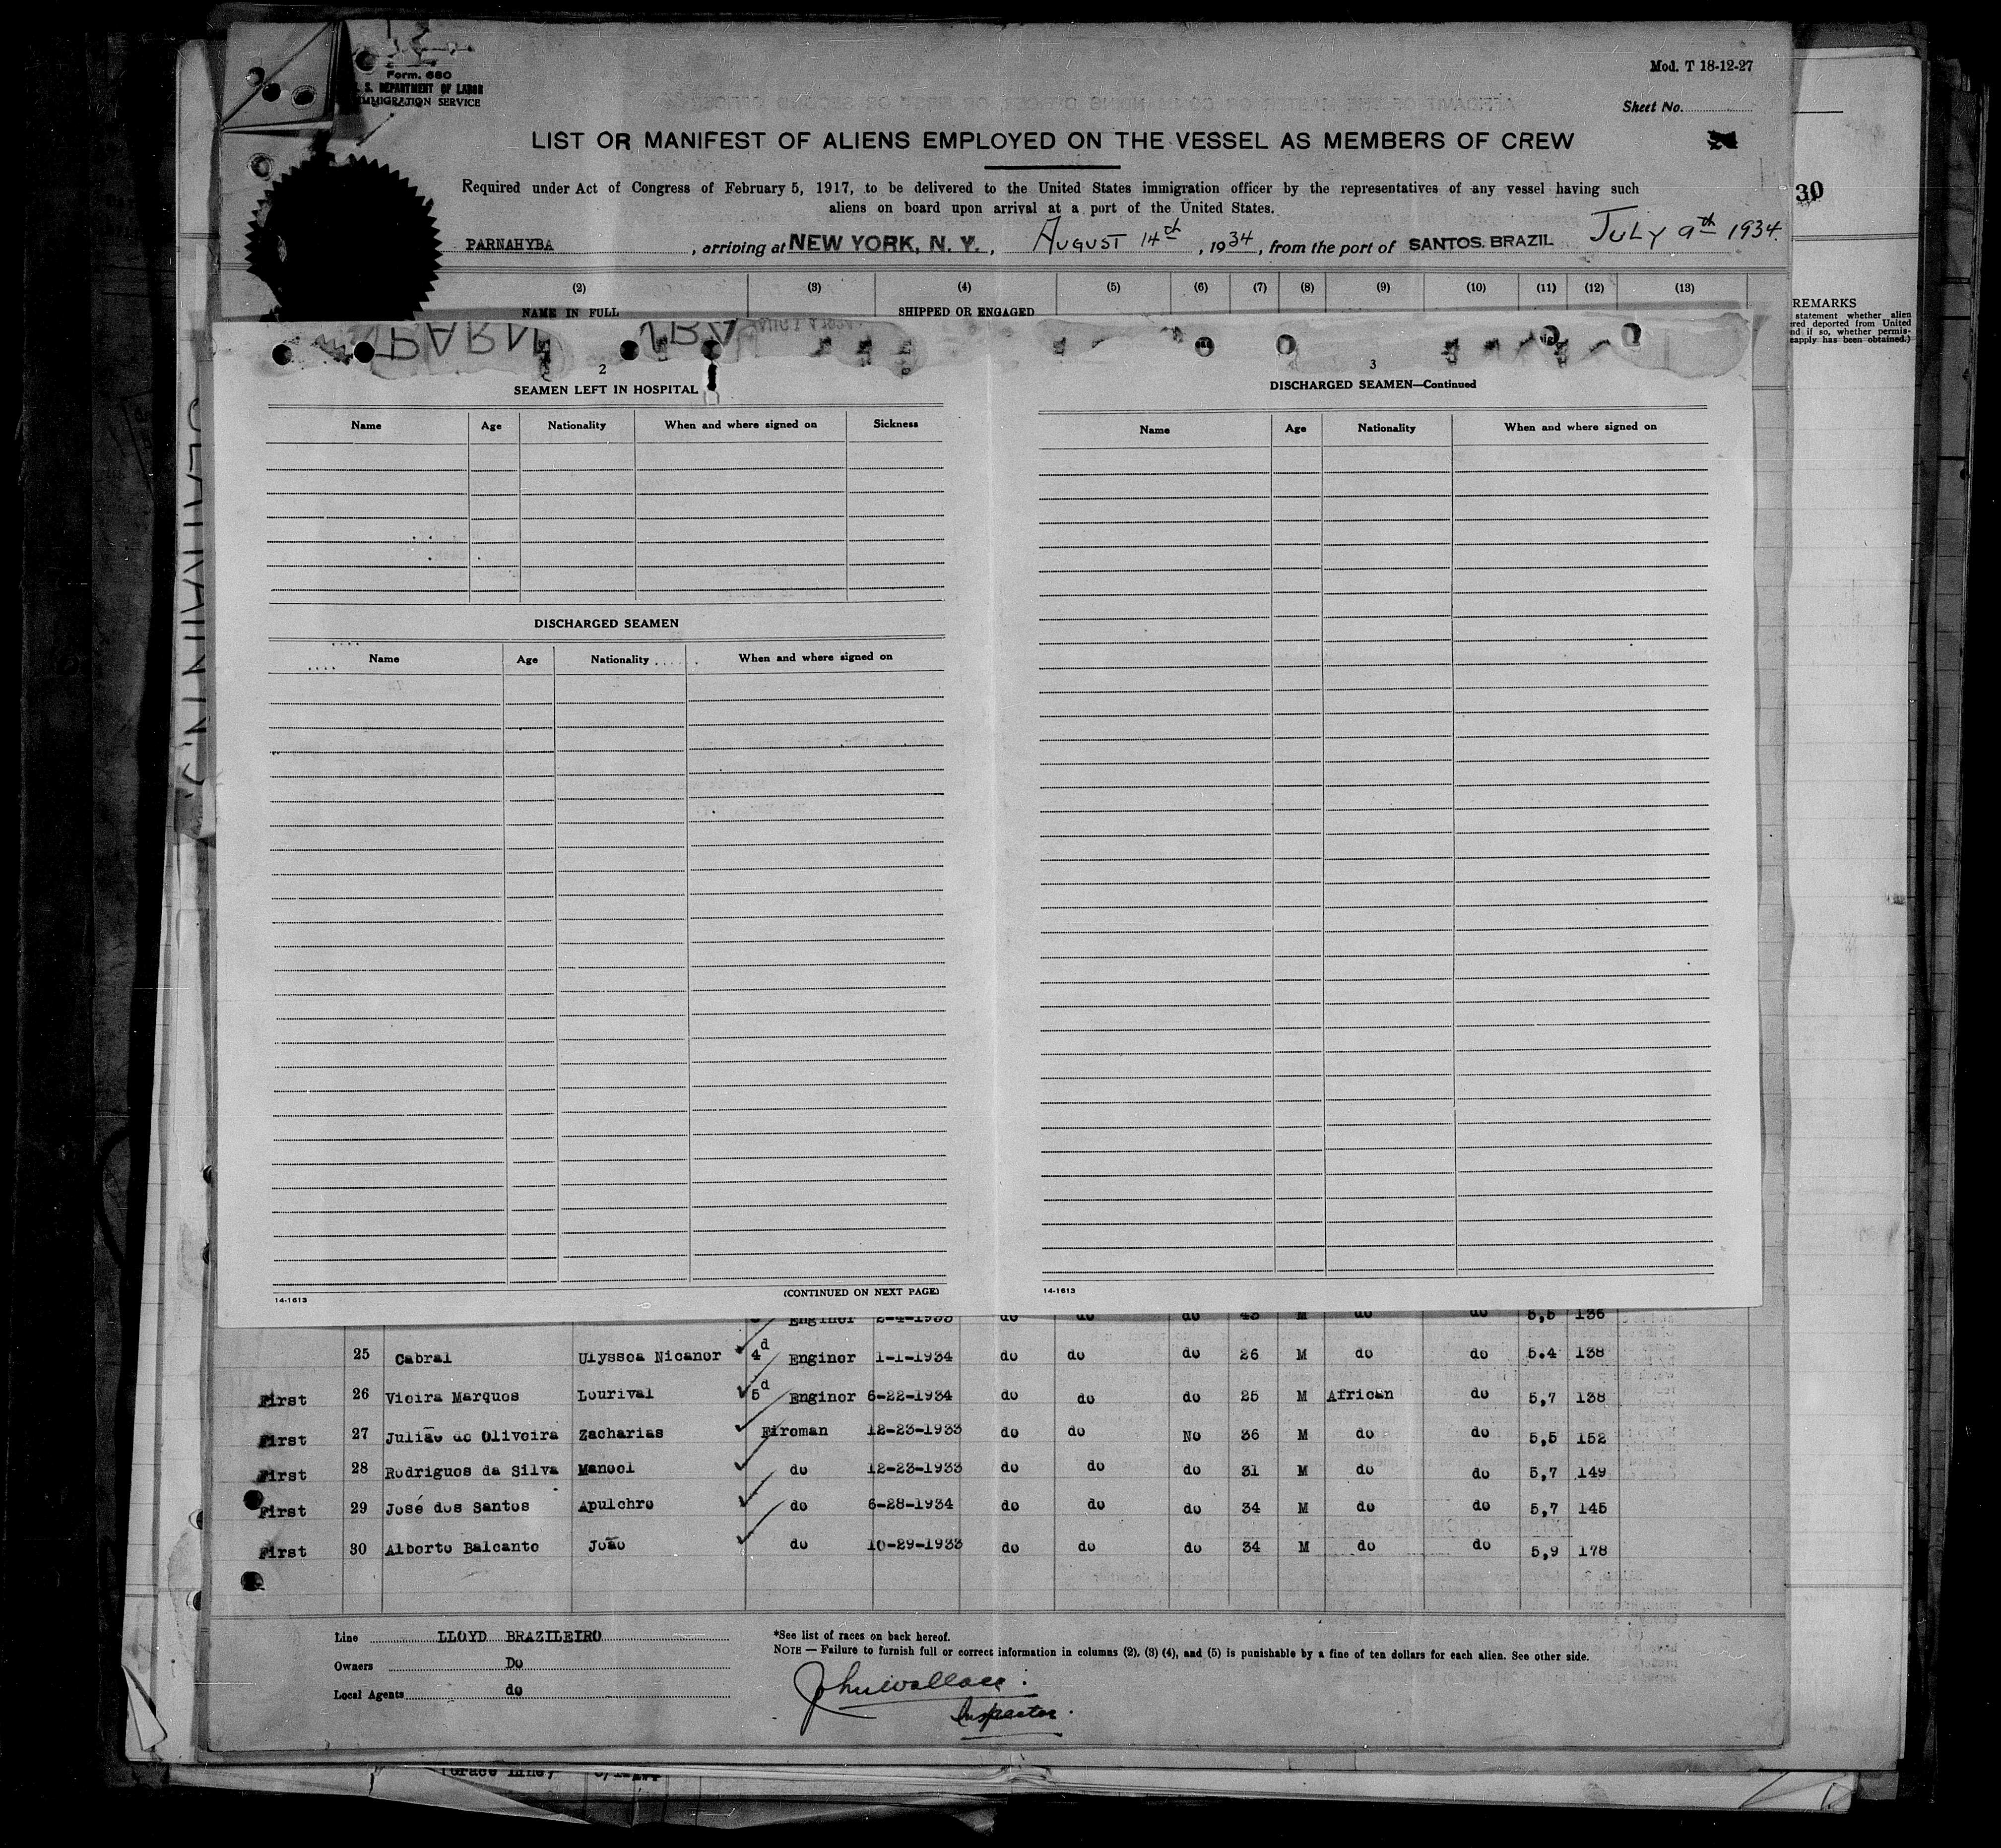 Form. 680
U. S. DEPARTMENT OF LABOR
IMMIGRATION SERVICE
Mod. T 18-12-27
Sheet No.
LIST OR MANIFEST OF ALIENS EMPLOYED ON THE VESSEL AS MEMBERS OF CREW
Required under Act of Congress of February 5, 1917, to be delivered to the United States immigration officer by the representatives of any vessel having such
aliens on board upon arrival at a port of the United States.
30
PARNAHYBA, arriving at NEW YORK, N. Y., August 14th, 1934, from the port of SANTOS. BRAZIL July 9th 1934.
(2) (3) (4) (5) (6) (7) (8) (9) (10) (11) (12) (13)
NAME IN FULL SHIPPED OR ENGAGED
REMARKS
statement whether alien
red deported from United
nd if so, whether permis-
eapply has been obtained.)
2
SEAMEN LEFT IN HOSPITAL
Name Age Nationality When and where signed on Sickness
DISCHARGED SEAMEN
Name Age Nationality When and where signed on
(CONTINUED ON NEXT PAGE)
14-1613
3
DISCHARGED SEAMEN—Continued
Name Age Nationality When and where signed on
14-1613
Enginer 2-4-1933 do do do 43 M do do 5,5 136
25 Cabral Ulyssea Nicanor 4d Enginer 1-1-1934 do do do 26 M do do 5.4 138
First 26 Vieira Marques Lourival 5d Enginer 6-22-1934 do do do 25 M African do 5,7 138
First 27 Julião de Oliveira Zacharias Fireman 12-23-1933 do do No 36 M do do 5,5 152
First 28 Rodrigues da Silva Manoel do 12-23-1933 do do do 31 M do do 5,7 149
First 29 José dos Santos Apulchro do 6-28-1934 do do do 34 M do do 5,7 145
First 30 Alberto Balcante João do 10-29-1933 do do do 34 M do do 5,9 178
Line LLOYD BRAZILEIRO
Owners Do
Local Agents do
*See list of races on back hereof.
NOTE — Failure to furnish full or correct information in columns (2), (3) (4), and (5) is punishable by a fine of ten dollars for each alien. See other side.
John Wallace
Inspector.